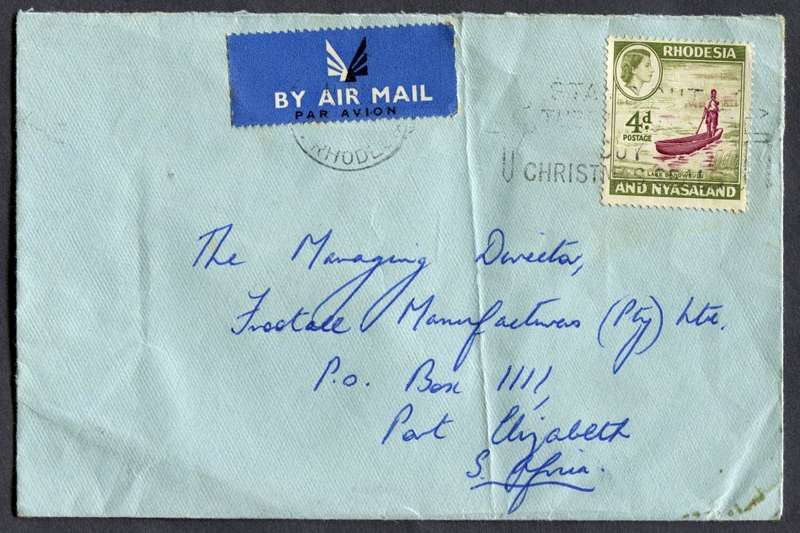 BY AIR MAIL
PAR AVION
RHODE
RHODESIA
4d.
POSTAGE
LAKE BANGWEULU
AND NYASALAND
CHRIST
The Managing Director,
Manufacturers (Pty) Ltd.
P.O. Box 1111,
Port Elizabeth
S. Africa.